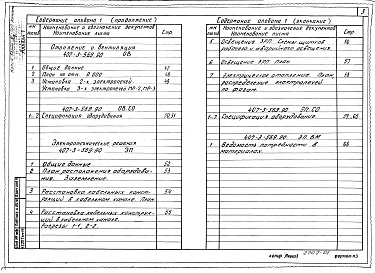 3
Содержание альбома 1 (продолжение)
NN листов
Наименование и обозначение документов
Наименование листа
Стр.
Отопление и вентиляция
407-3-569.90 ОВ
1 Общие данные 47
2 План на отм. 0.000 48
3 Установка 2-х электропечей
Установка 3-х электропечей
49
407-3-569.90 ОВ.СО
1, 2 Спецификация оборудования 50,51
Электротехнические решения
407-3-569.90 ЭП
1 Общие данные 52
2 План расположения оборудования. Заземление. 53
3 Расстановка кабельных конструкций в кабельном канале. План 54
4 Расстановка кабельных конструкций в кабельном канале.
Разрезы 1-1, 2-2
55
Содержание альбома 1 (окончание)
NN листов
Наименование и обозначение документов
Наименование листа
Стр.
5 Освещение ЗРП. Схемы щитков рабочего и аварийного освещения. 56
6 Освещение ЗРП. План 57
7 Электрическое отопление. План, распределение электропечей по фазам. 58
407-3-569.90 ЭП.СО
Спецификация оборудования.
407-3-569.90 ЭП.ВМ
Ведомость потребности в материалах.
формат А3